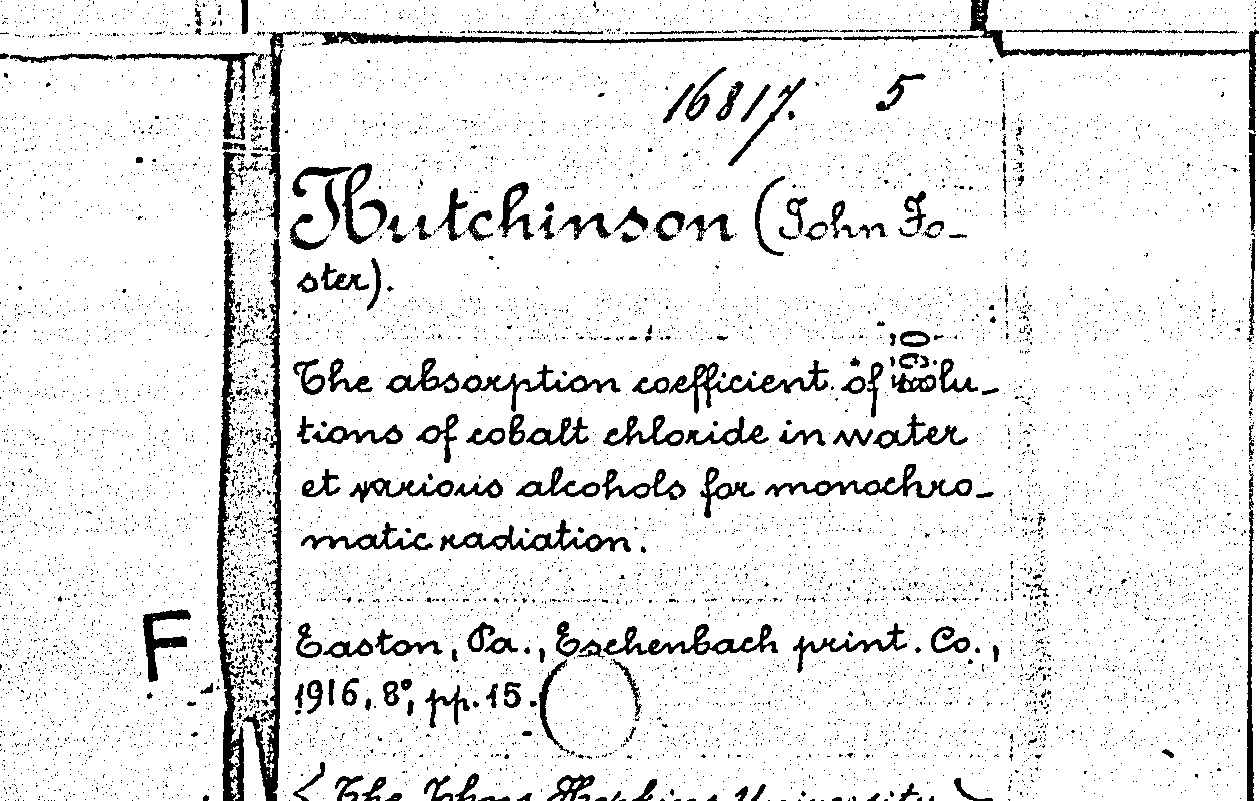 16817. 5
Hutchinson (John Fo-
ster).
The absorption coefficient of solu-
tions of cobalt chloride in water
et various alcohols for monochro-
matic radiation.
F
Easton, Pa., Eschenbach print. Co.,
1916, 8°, pp. 15.
The Johns Hopkins University